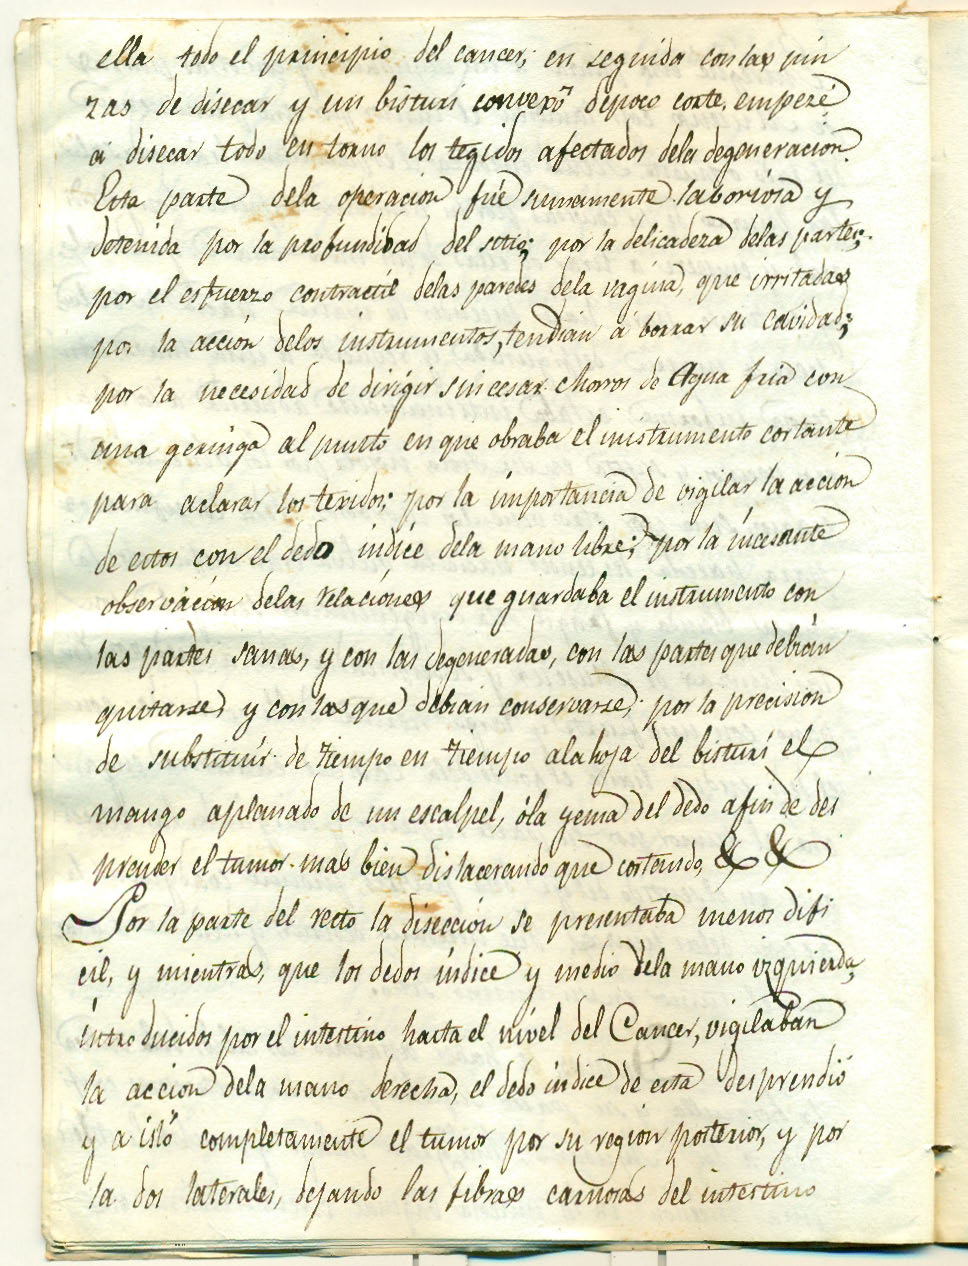 ella todo el principio del cancer; en seguida con las pin
zas de disecar y un bisturi convexo depoco corte, empezé
á disecar todo en torno los tegidos afectados dela degeneracion.
Esta parte dela operacion fué sumamente laboriosa y
detenida por la profundidad del sitio; por la delicadeza delas partes;
por el esfuerzo contractil delas paredes dela vagina, que irritadas
por la acción delos instrumentos, tendian á borrar su cavidad;
por la necesidad de dirigir sin cesar chorros de Agua fria con
una geringa al punto en que obraba el instrumento cortante
para aclarar los texidos; por la importancia de vigilar la acción
de estos con el dedo indice dela mano libre; por la incesante
observación delas relaciónes que guardaba el instrumento con
las partes sanas, y con las degeneradas, con las partes que debian
quitarse, y con las que debian conservarse; por la precision
de substituir de tiempo en tiempo ala hoja del bisturí el
mango aplanado de un escalpel, óla yema del dedo afin de des
prender el tumor mas bien dislacerando que cortando, & &
Por la parte del recto la disección se presentaba menos difi
cil, y mientras, que los dedos índice y medio dela mano izquierda,
introducidos por el intestino hasta el nivel del Cancer, vigilaban
la accion dela mano derecha, el dedo indice de esta desprendió
y a isló completamente el tumor por su region posterior, y por
la dos laterales, dejando las fibras carnosas del intestino